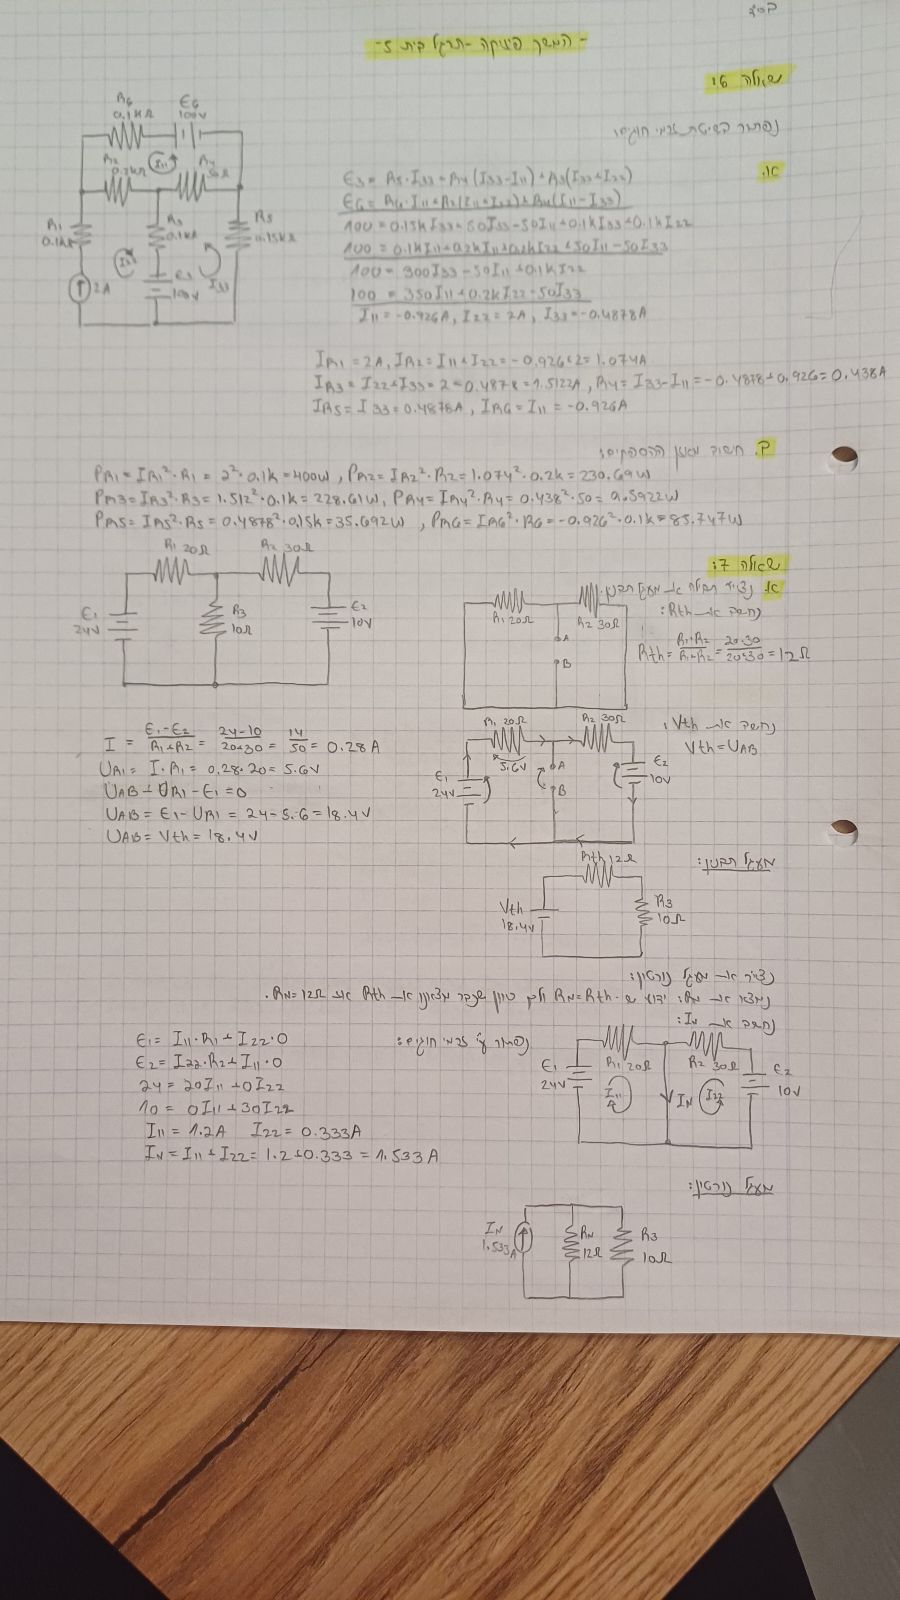 בס״ד
- המשך פיזיקה - תרגיל בית 5 -
שאלה 6:
נפתור בשיטת זרמי חוגים:
R6
0.1kΩ
E6
100V
R2
0.2kΩ
I11
R4
50Ω
R1
0.1kΩ
R3
0.1kΩ
R5
0.15kΩ
I22
I33
2A
E3
100V
א.
E3 = R5·I33 + R4(I33-I11) + R3(I33+I22)
E6 = R6·I11 + R2(I11+I22) + R4(I11-I33)
100 = 0.15kI33 + 50I33 - 50I11 + 0.1kI33 + 0.1kI22
100 = 0.1kI11 + 0.2kI11 + 0.2kI22 + 50I11 - 50I33
100 = 300I33 - 50I11 + 0.1kI22
100 = 350I11 + 0.2kI22 - 50I33
I11 = -0.926A, I22 = 2A, I33 = -0.4878A
IR1 = 2A, IR2 = I11 + I22 = -0.926+2 = 1.074A
IR3 = I22+I33 = 2-0.4878 = 1.5122A, R4 = I33-I11 = -0.4878+0.926 = 0.438A
IR5 = I33 = 0.4878A, IR6 = I11 = -0.926A
ב. חישוב מאזן הספקים:
PR1 = IR1²·R1 = 2²·0.1k = 400W, PR2 = IR2²·R2 = 1.074²·0.2k = 230.69W
PR3 = IR3²·R3 = 1.512²·0.1k = 228.61W, PR4 = IR4²·R4 = 0.438²·50 = 9.5922W
PR5 = IR5²·R5 = 0.4878²·0.15k = 35.692W, PR6 = IR6²·R6 = -0.926²·0.1k = 85.747W
שאלה 7:
R1 20Ω
R2 30Ω
E1
24V
R3
10Ω
E2
10V
א.
נחשב את Rth:
R1 20Ω
R2 30Ω
A
B
Rth = R1·R2/R1+R2 = 20·30/20+30 = 12Ω
נחשב את Vth:
Vth = UAB
I = E1-E2/R1+R2 = 24-10/20+30 = 14/50 = 0.28A
UR1 = I·R1 = 0.28·20 = 5.6V
UAB + UR1 - E1 = 0
UAB = E1 - UR1 = 24-5.6 = 18.4V
UAB = Vth = 18.4V
R1 20Ω
R2 30Ω
5.6V
A
B
E1
24V
E2
10V
מעגל תבנין:
Rth 12Ω
Vth
18.4V
R3
10Ω
נצייר את מעגל נורטון:
נמצא את RN: ידוע ש- RN=Rth ולכן כיוון שכבר מצאנו את Rth אז RN=12Ω.
נחשב את IN:
נפתור ע״י זרמי חוגים:
E1 = I11·R1 + I22·0
E2 = I22·R2 + I11·0
24 = 20I11 + 0I22
10 = 0I11 + 30I22
I11 = 1.2A I22 = 0.333A
IN = I11 + I22 = 1.2+0.333 = 1.533A
R1 20Ω
R2 30Ω
E1
24V
I11
IN
I22
E2
10V
מעגל נורטון:
IN
1.533A
RN
12Ω
R3
10Ω